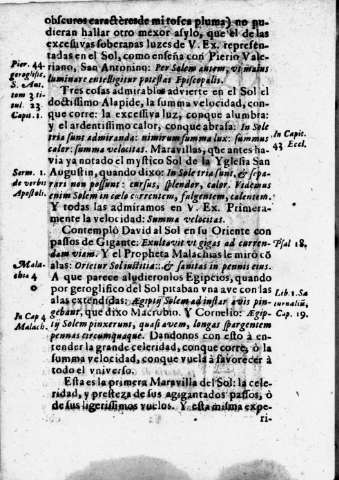 obscuros caractères de mi tosca pluma) no pu-
dieran hallar otro mexor asylo, que el de las
excessivas soberanas luzes de V. Ex. represen-
tadas en el Sol, como enseña con Pierio Vale-
riano, San Antonino: Per Solem autem, vt maius
luminare intelligitur potestas Episcopalis.
Pier. 44.
geroglific.
S. Ant.
tom 3 ti
tul. 23
Capit. 1.
Tres cosas admirables advierte en el Sol el
doctissimo Alapide, la summa velocidad, con-
que corre: la excessiva luz, conque alumbra:
y el ardentissimo calor, conque abrasa: In Sole
tria sunt admiranda: nimirum summa lux: summus
calor: summa velocitas. Maravillas, que antes ha-
via ya notado el mystico Sol de la Yglesia San
Augustin, quando dixo: In Sole tria sunt, & sepa-
rari non possunt: cursus, splendor, calor. Videmus
enim Solem in cœlo currentem, fulgentem, calentem.
Y todas las admiramos en V. Ex. Primera-
mente la velocidad: Summa velocitas.
In Capit.
43 Eccl.
Serm. 1.
de verbis
Apostoli.
Contemplò David al Sol en su Oriente con
passos de Gigante: Exultavit vt gigas ad curren-
dam viam. Y el Propheta Malachias le mirò cō
alas: Orietur Sol iustitiæ: & sanitas in pennis eius.
A que parece aludieron los Egipcios, quando
por geroglifico del Sol pitaban vna ave con las
alas extendidas: Ægiptij Solem ad instar avis pin-
gebant, que dixo Macrobio. Y Cornelio: Ægip-
tij Solem pinxerunt, quasi avem, longas spargentem
pennas circumquaque. Dandonos con esto à en-
tender la grande celeridad, conque corre, ò la
summa velocidad, conque vuela à favorecer à
todo el vniverso.
Psal 18.
Mala-
chia 4
Lib 1. Sa
turnaliū,
Cap. 19.
In Cap 4
Malach.
Esta es la primera Maravilla del Sol: la cele-
ridad, y presteza de sus agigantados passos, ò
de sus ligerissimos vuelos. Y esta misma expe-
ri-